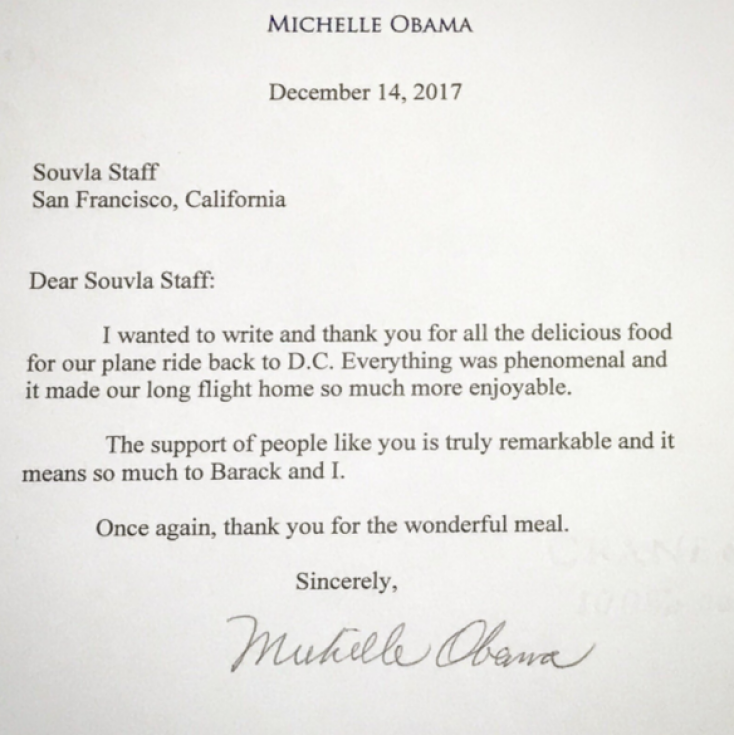 MICHELLE OBAMA
December 14, 2017
Souvla Staff
San Francisco, California
Dear Souvla Staff:
I wanted to write and thank you for all the delicious food
for our plane ride back to D.C. Everything was phenomenal and
it made our long flight home so much more enjoyable.
The support of people like you is truly remarkable and it
means so much to Barack and I.
Once again, thank you for the wonderful meal.
Sincerely,
Michelle Obama